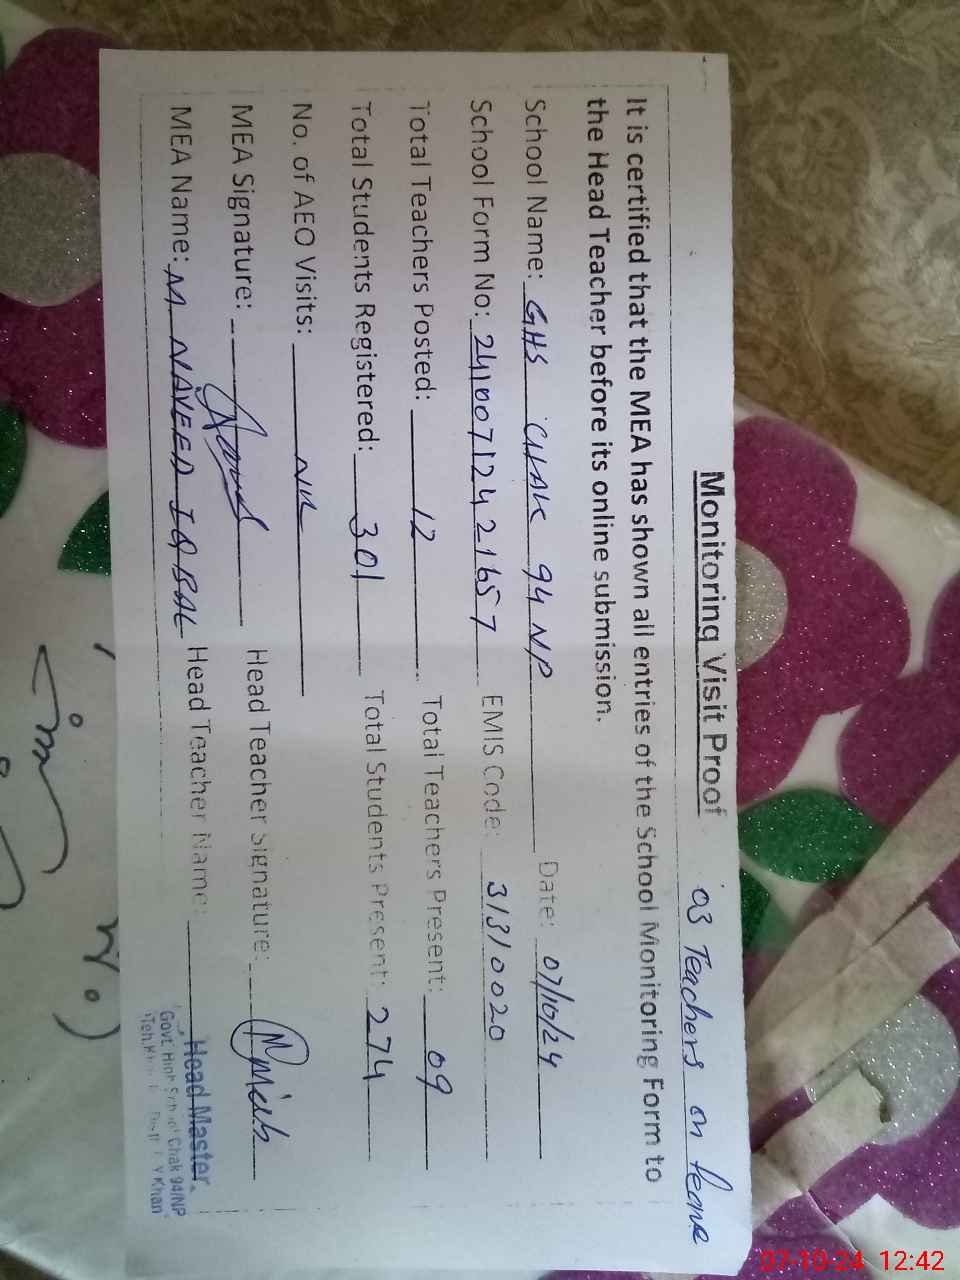 Monitoring Visit Proof
03 Teachers on leave
It is certified that the MEA has shown all entries of the School Monitoring Form to
the Head Teacher before its online submission.
School Name: GHS CHAK 94 NP Date: 07/10/24
School Form No: 24100712421657 EMIS Code: 31310020
Total Teachers Posted: 12 Total Teachers Present: 09
Total Students Registered: 301 Total Students Present: 274
No. of AEO Visits: Nil
MEA Signature: Head Teacher Signature:
MEA Name: M NAVEED IQBAL Head Teacher Name:
Head Master
Govt. High School Chak 94/NP
Teh. Khan
07-10-24 12:42